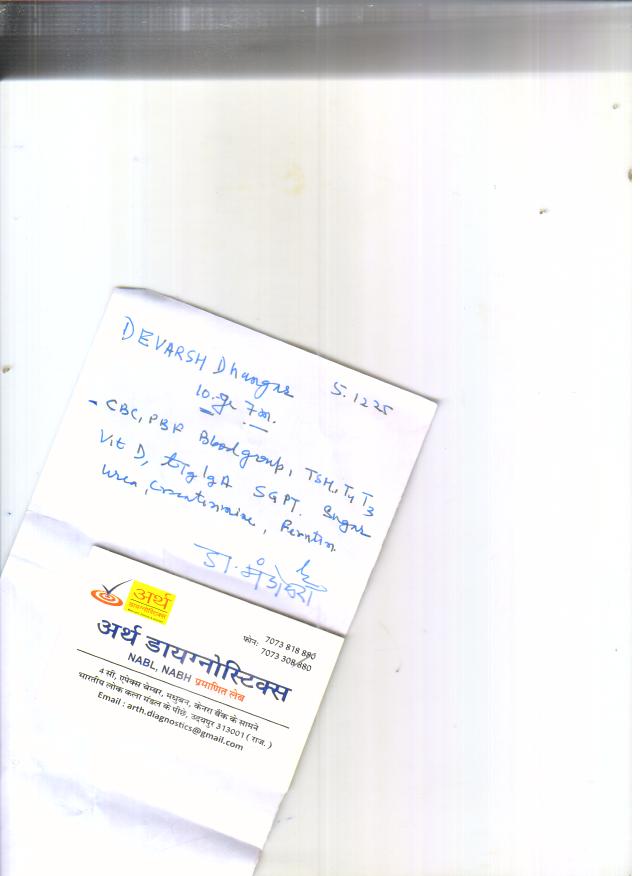 DEVARSH Dhangar 5.12.25
10.yr 7m.
- CBC, PBF Blood group, TSH, T4 T3
Vit D, tTg IgA SGPT. Sugar
Urea, Creatinine, Ferritin
डा.
अर्थ
डायग्नोस्टिक्स
अर्थ डायग्नोस्टिक्स
NABL, NABH प्रमाणित लेब
फोन: 7073 818 880
7073 308 880
4 सी, एपेक्स चेम्बर, मधुबन, केनरा बैंक के सामने
भारतीय लोक कला मंडल के पीछे, उदयपुर 313001 ( राज. )
Email : arth.diagnostics@gmail.com